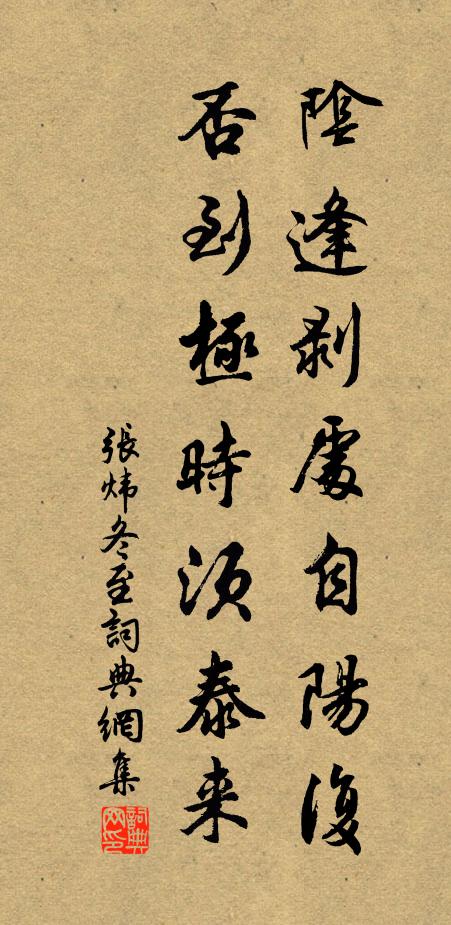 陰逢剝處自陽復
否到極時須泰来
張煒冬至詞典網集
詞典网印